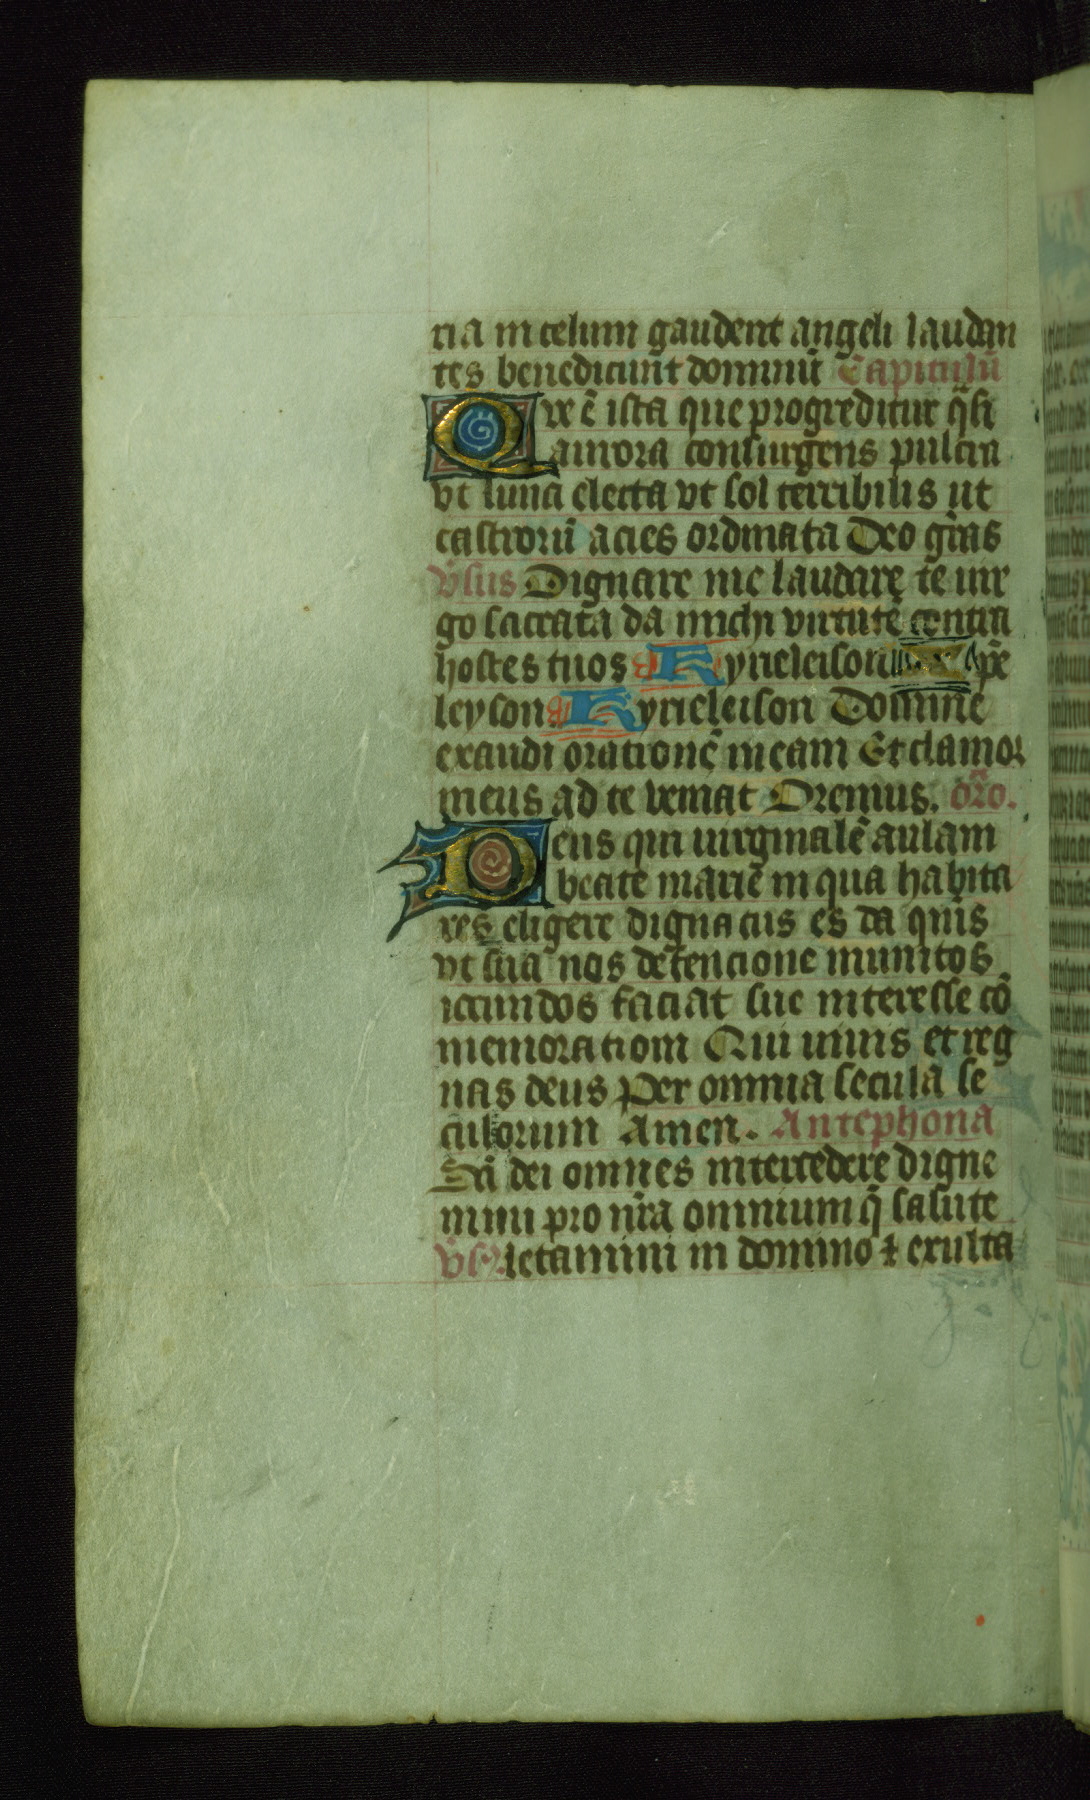 ria in celum gaudent angeli laudan
tes benedicunt dominū Capitulū
Que ē ista que progreditur q̄si
aurora consurgens pulcra
vt luna electa vt sol terribilis ut
castrorū acies ordinata Deo gr̄as
v̄sus Dignare me laudare te uir
go sacrata da michi virtutē contra
hostes tuos Kyrieleison xp̄e
leyson Kyrieleison Domine
exaudi orationē meam Et clamor
meus ad te veniat Oremus. or̄o.
Deus qui uirginalē aulam
beate marie in qua habita
res eligere dignatus es da quis̄
vt sua nos defencione munitos
iocundos faciat sue interesse cō
memorationi Qui uiuis et reg
nas deus Per omnia secula se
culorum Amen. Antephona
Sc̄i dei omnes intercedere digne
mini pro nr̄a omnium q̄ salute
v̄s letamini in domino ⁊ exulta